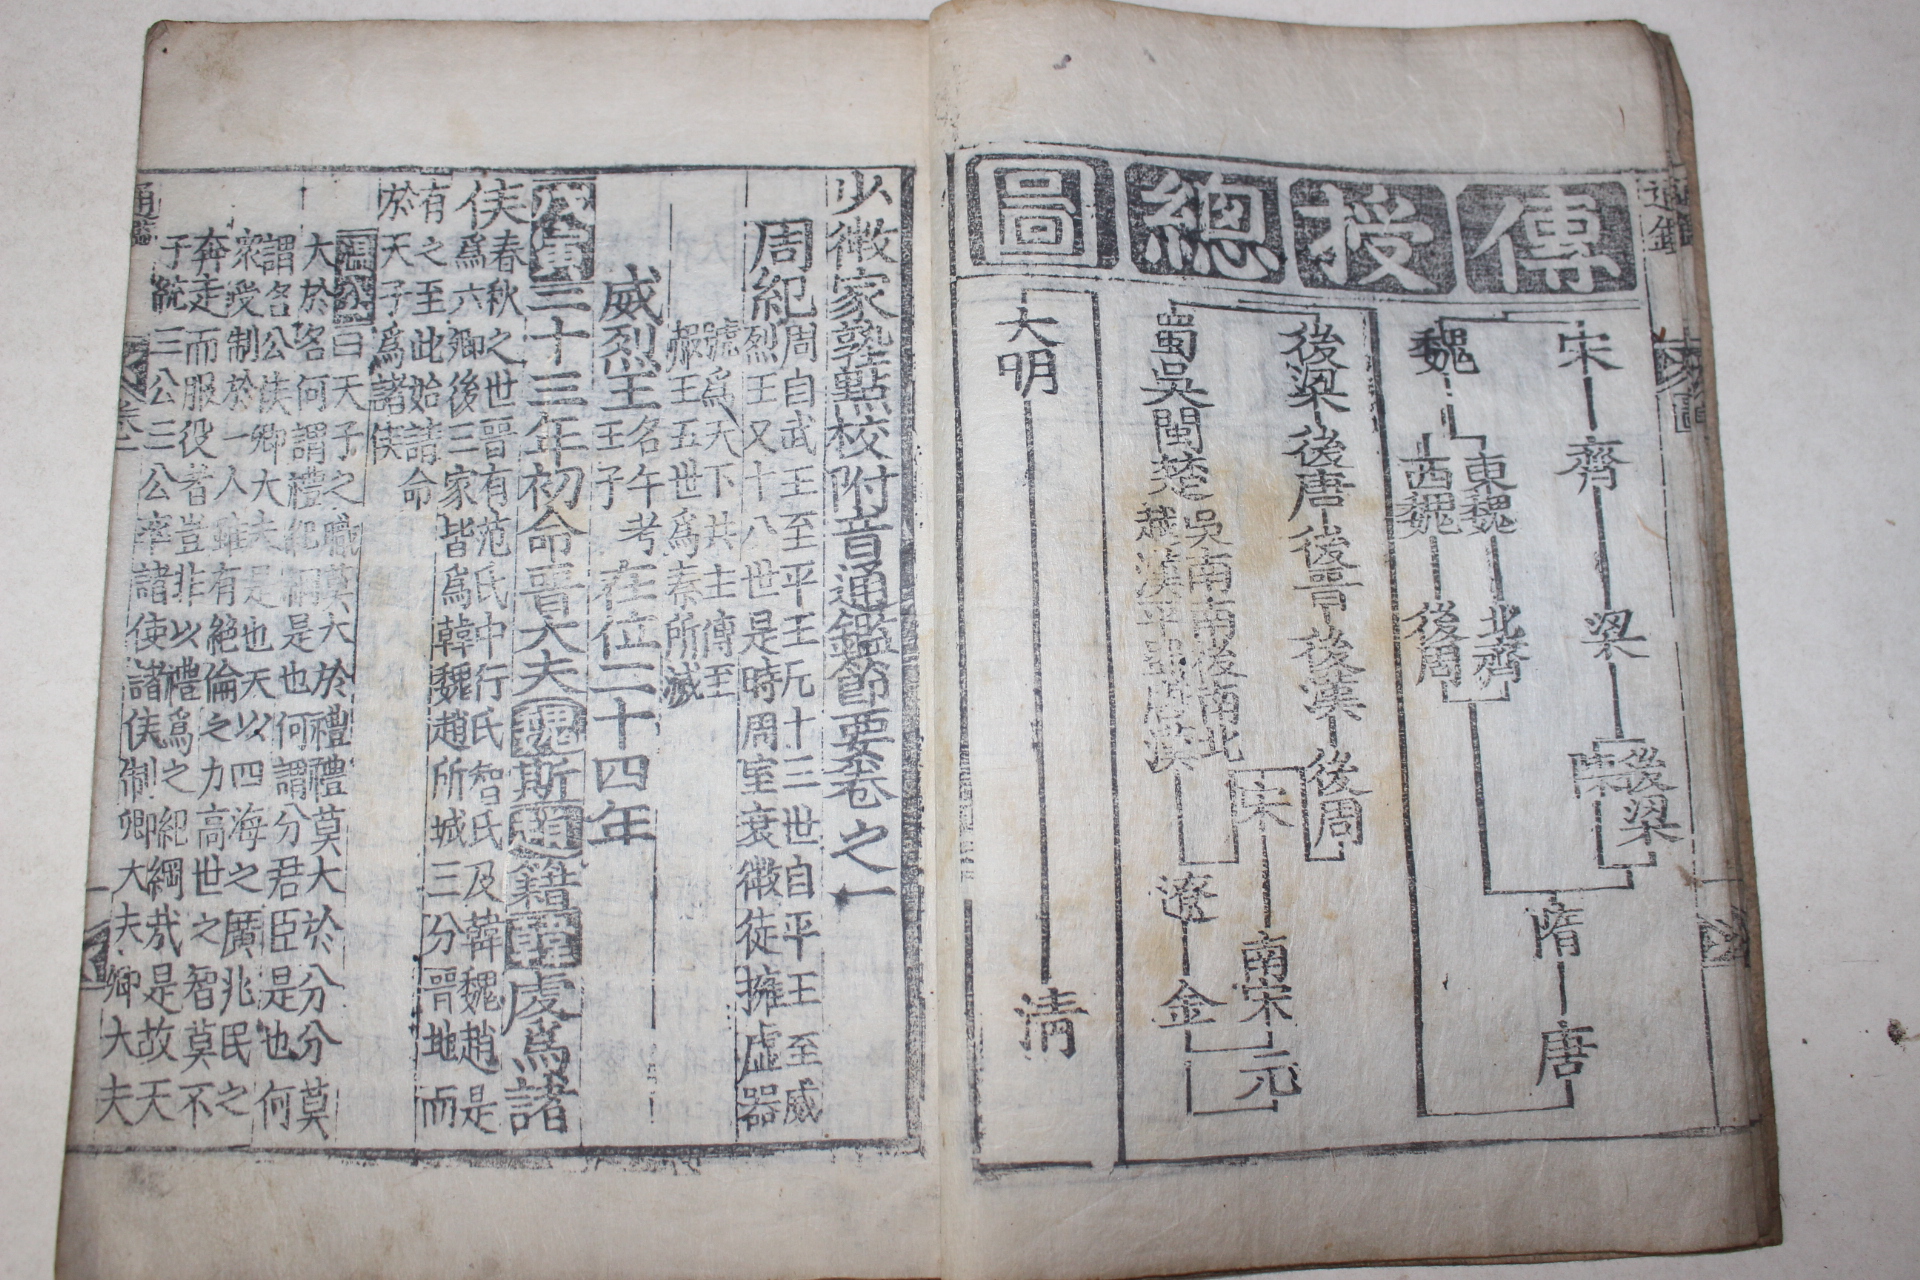 傳授總圖
宋 齊 梁 陳 後梁
魏 東魏 北齊
西魏 後周
隋 唐
後梁 後唐 後晉 後漢 後周
蜀吳閩楚
吳南南後南北
越漢平蜀唐漢
宋 南宋 元
遼 金
大明 清
少微家塾點校附音通鑑節要卷之一
周紀
周自武王至平王凡十三世自平王至威
烈王又十八世是時周室衰微徒擁虛器
號爲天下共主傳至
赧王五世爲秦所滅
威烈王
名午考
王子
在位二十四年
戊寅二十三年初命晉大夫魏斯趙籍韓虔爲諸
侯
春秋之世晉有范氏中行氏智氏及韓魏趙是
爲六卿後三家皆爲韓魏趙所滅三分晉地而
有之至此始請命
於天子爲諸侯
溫公曰天子之職莫大於禮禮莫大於分分莫
大於名何謂禮紀綱是也何謂分君臣是也何
謂名公侯卿大夫是也天以四海之廣兆民之
衆受制於一人雖有絶倫之力高世之智莫不
奔走而服役者豈非以禮爲之紀綱哉是故天
子統三公三公率諸侯諸侯制卿大夫卿大夫
通鑑
卷一